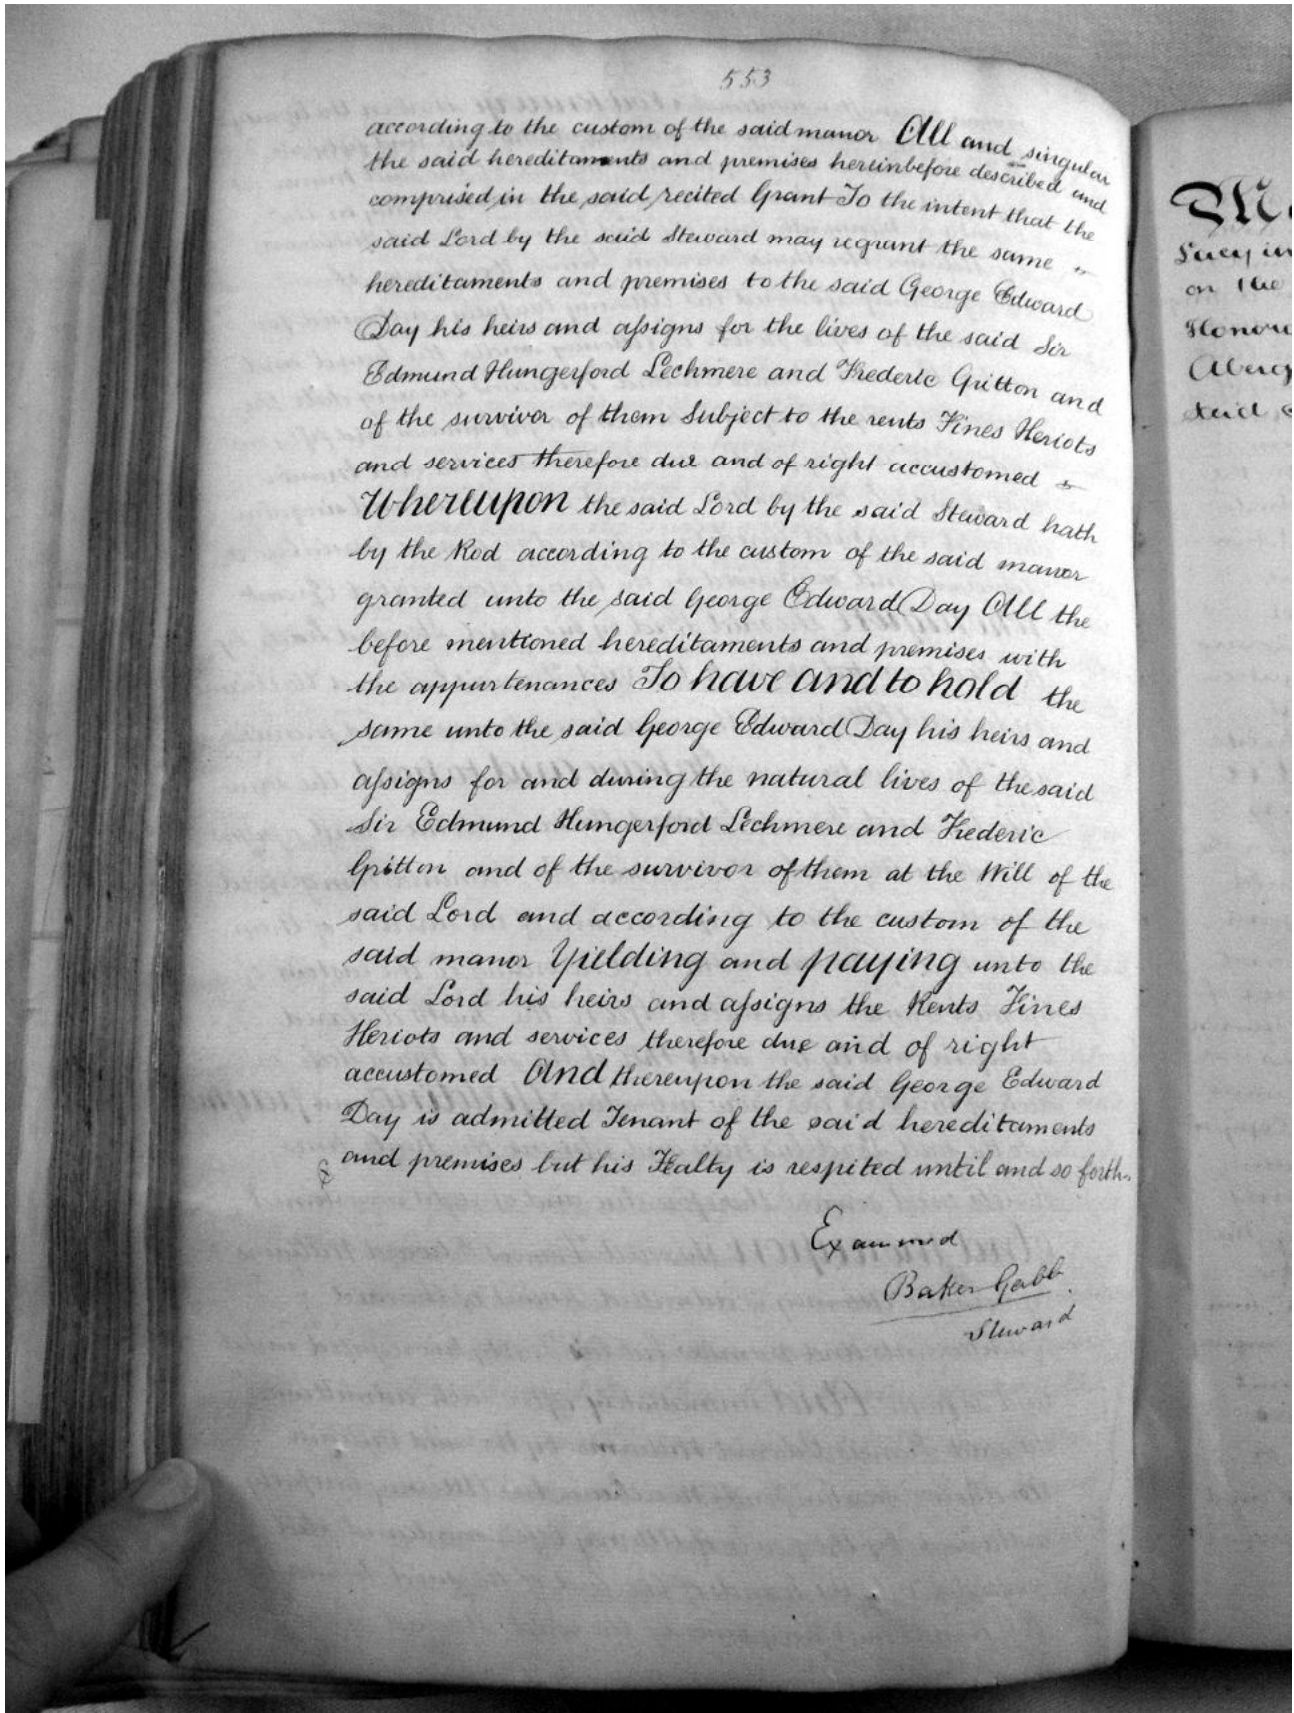 553
according to the custom of the said manor All and singular
the said hereditaments and premises hereinbefore described and
comprised in the said recited Grant To the intent that the
said Lord by the said Steward may regrant the same
hereditaments and premises to the said George Edward
Day his heirs and assigns for the lives of the said Sir
Edmund Hungerford Lechmere and Frederic Gritton and
of the survivor of them Subject to the rents Fines Heriots
and services therefore due and of right accustomed
Whereupon the said Lord by the said Steward hath
by the Rod according to the custom of the said manor
granted unto the said George Edward Day All the
before mentioned hereditaments and premises with
the appurtenances To have and to hold the
same unto the said George Edward Day his heirs and
assigns for and during the natural lives of the said
Sir Edmund Hungerford Lechmere and Frederic
Gritton and of the survivor of them at the Will of the
said Lord and according to the custom of the
said manor Yielding and paying unto the
said Lord his heirs and assigns the Rents Fines
Heriots and services therefore due and of right
accustomed And thereupon the said George Edward
Day is admitted Tenant of the said hereditaments
and premises but his Fealty is respited until and so forth
Examined
Baker Gabb
Steward
Lucy in
on the